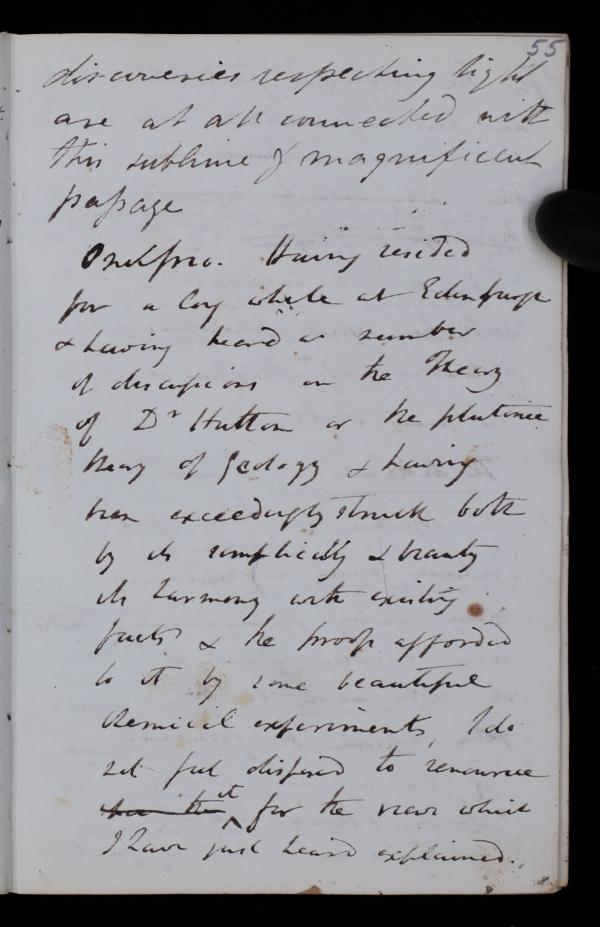 55
discoveries respecting light
are at all connected with
this sublime & magnificent
passage
Onuphrio. Having resided
for a long while at Edinburgh
& having heard a number
of discussions on the Theory
of Dr Hutton or the plutonic
theory of Geology & having
been exceedingly struck both
by its simplicity & beauty
its harmony with existing
facts & the proofs afforded
to it by some beautiful
chemical experiments, I do
not feel disposed to renounce
it for the views which
I have just heard explained.